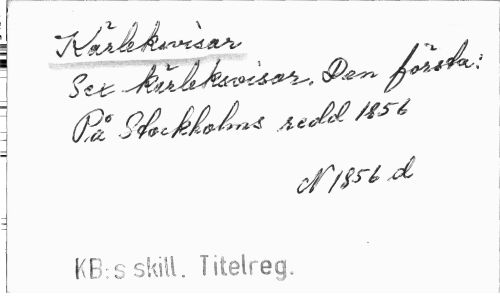 Kärleksvisar
Sex kärleksvisor. Den första:
På Stockholms redd 1856
N 1856 d
KB:s skill. Titelreg.